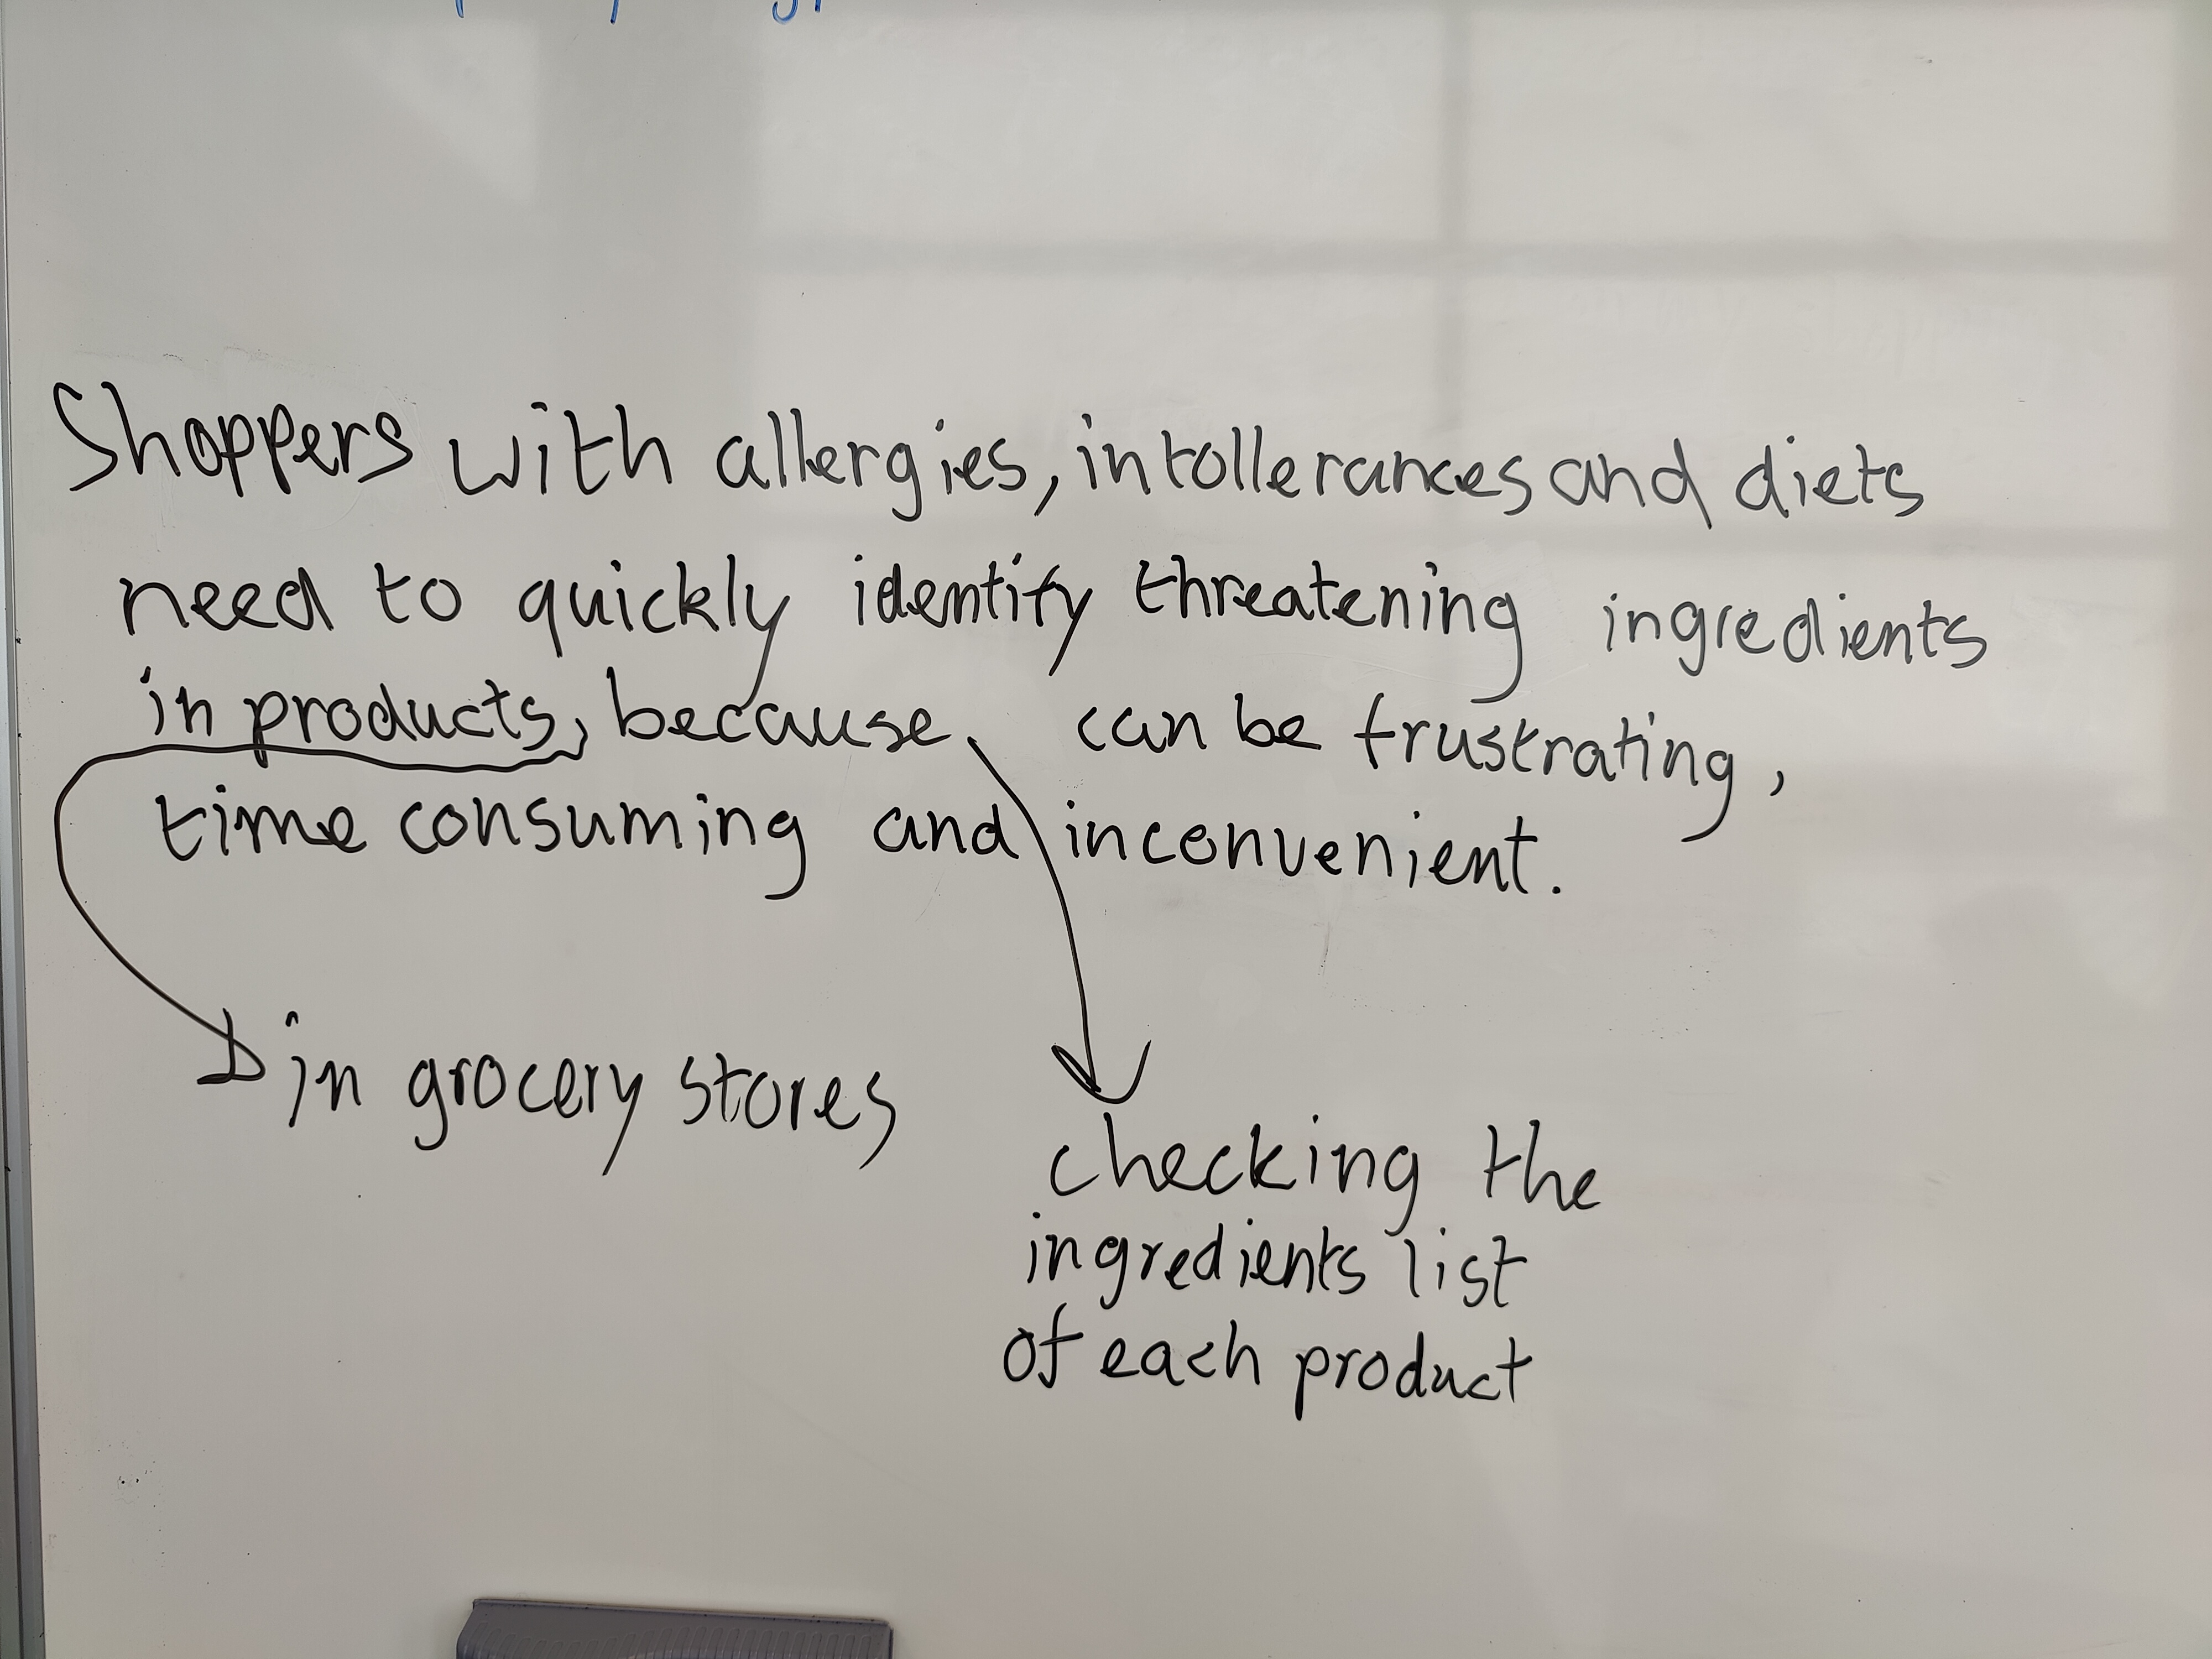 Shoppers with allergies, intollerances and diets
need to quickly identify threatening ingredients
in products, because can be frustrating,
time consuming and inconvenient.
in grocery stores
checking the
ingredients list
of each product